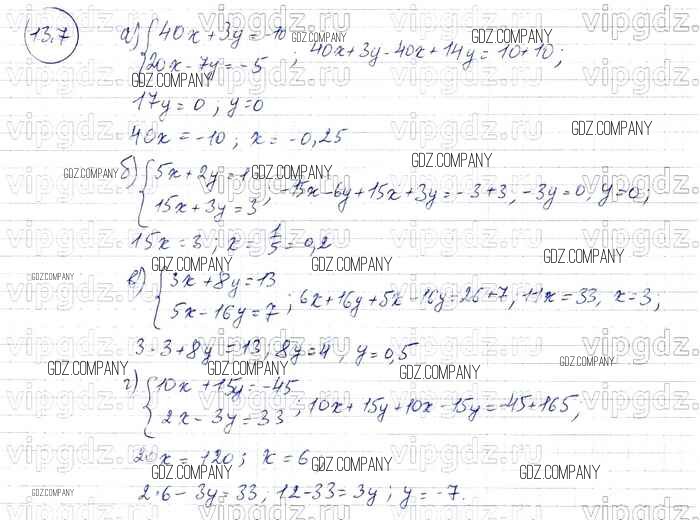 13.7
а) { 40x + 3y = -10
20x - 7y = -5 ; 40x + 3y - 40x + 14y = 10 + 10 ;
17y = 0 , y = 0
40x = -10 ; x = -0,25
б) { 5x + 2y = 1
15x + 3y = 3 ; -15x - 6y + 15x + 3y = -3 + 3, -3y = 0, y = 0 ;
15x = 3 ; x = 1/5 = 0,2
в) { 3x + 8y = 13
5x - 16y = 7 ; 6x + 16y + 5x - 16y = 26 + 7, 11x = 33, x = 3 ;
3·3 + 8y = 13, 8y = 4, y = 0,5
г) { 10x + 15y = -45
2x - 3y = 33 ; 10x + 15y + 10x - 15y = -45 + 165,
20x = 120 ; x = 6
2·6 - 3y = 33, 12 - 33 = 3y ; y = -7.
vipgdz.ru
GDZ.COMPANY